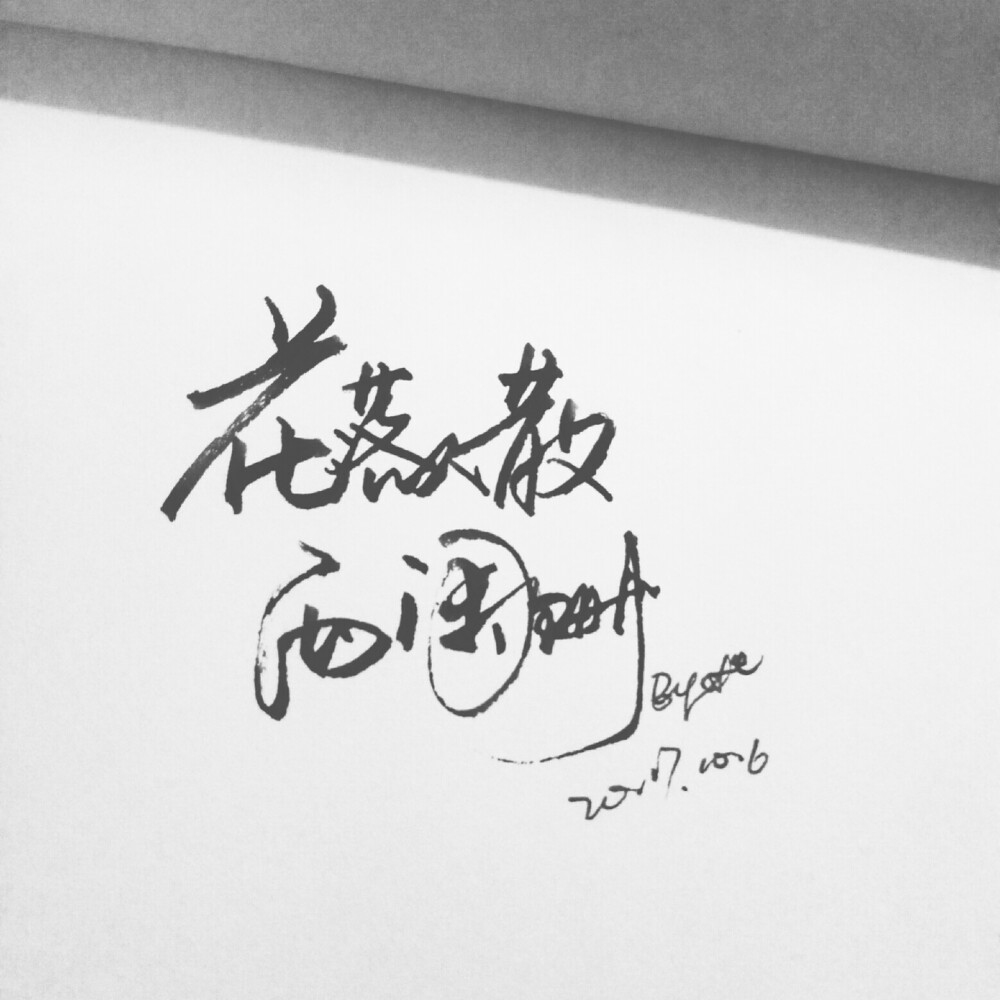 花落人散
两阑珊
By
2017.10.6